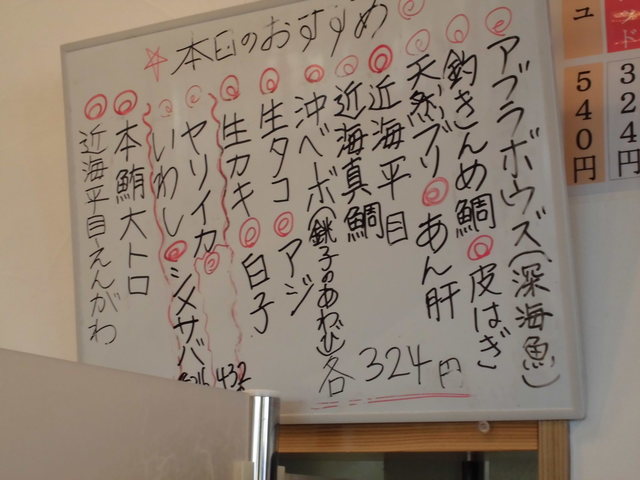 ☆本日のおすすめ
アブラボウズ(深海魚)
釣きんめ鯛 皮はぎ
天然ブリ あん肝
近海平目
近海真鯛
沖ベボ(銚子のあわび)各324円
生タコ アジ
生カキ 白子
ヤリイカ 432
いわし シメサバ 216
本鮪大トロ
近海平目えんがわ
324円
540円